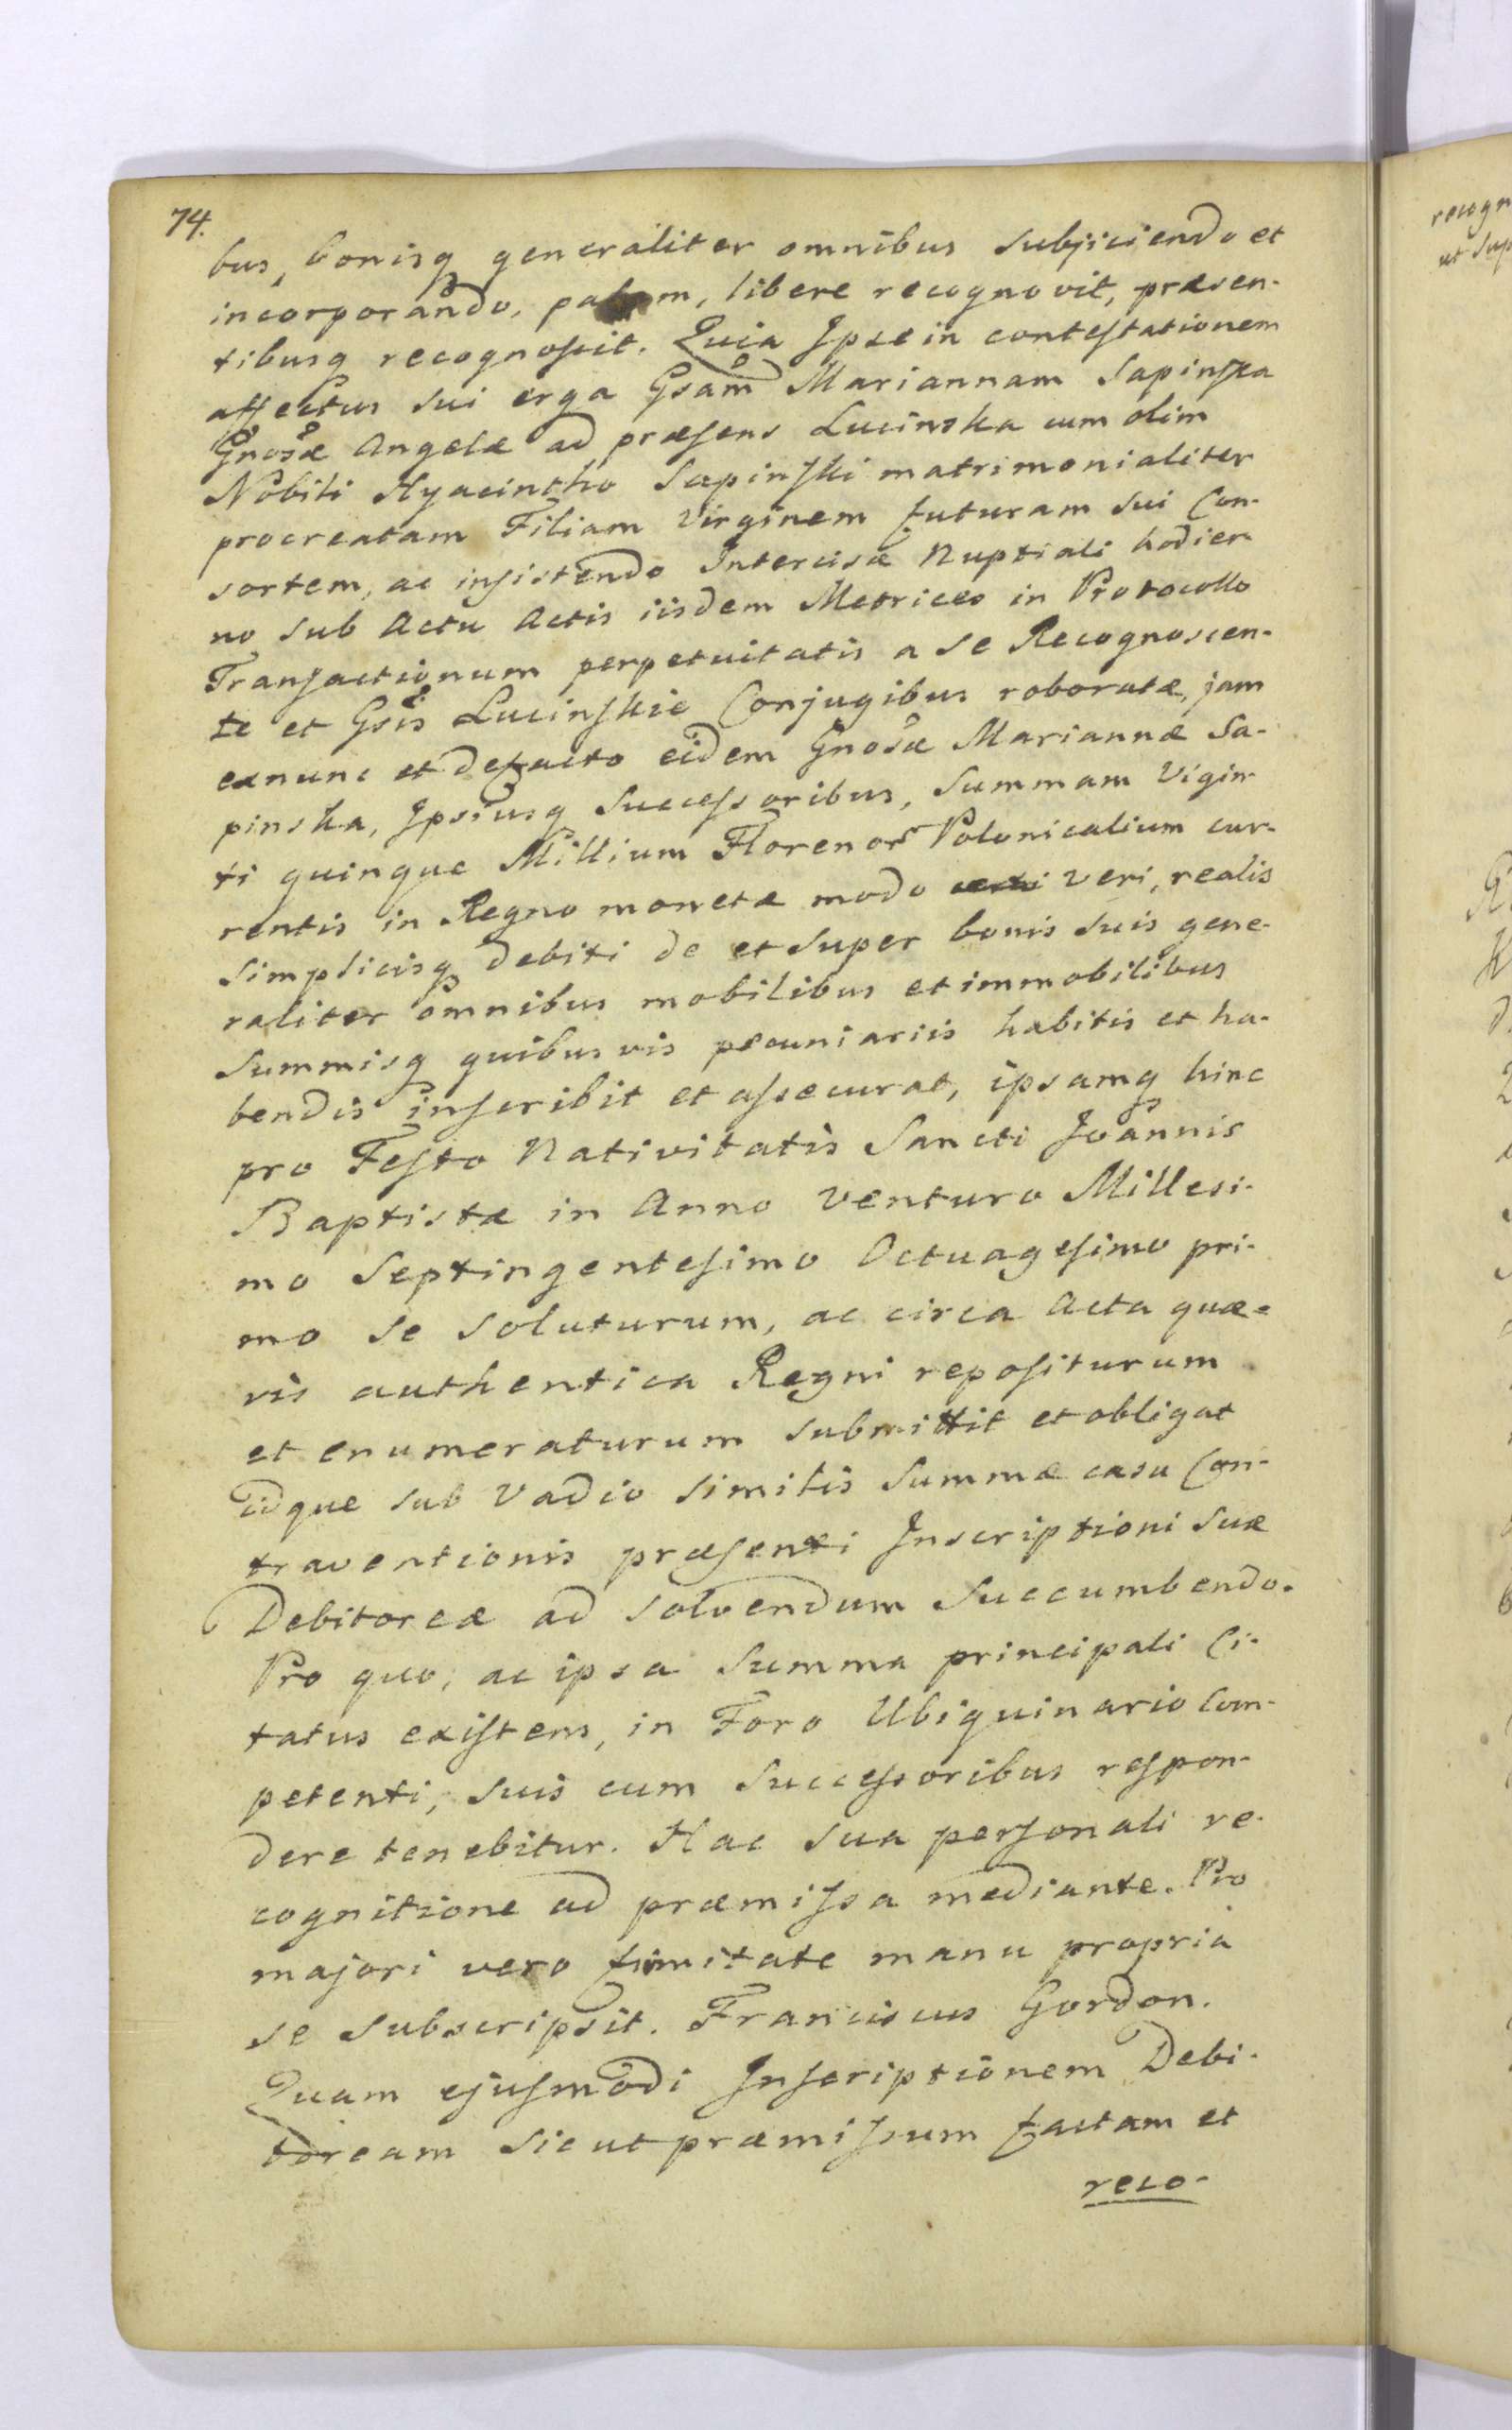 74.
bus, bonisq generaliter omnibus subjiciendo et
incorporando, palam, libere recognovit, præsen-
tibusq recognoscit. Quia Ipse in contestationem
affectus sui erga Gsam Mariannam Sapinska
Gnosæ Angelæ ad præsens Lucinska cum olim
Nobili Hyacintho Sapinski matrimonialiter
procreatam Filiam Virginem futuram sui Con-
sortem, ac insistendo Intercisæ Nuptiali hodier-
no sub Actu Actis iisdem Metrices in Protocollo
Transactionum perpetuitatis a se Recognoscen-
te et Gsis Lucinskie Conjugibus roboratæ, jam
exnunc et defacto eidem Gnosæ Mariannæ Sa-
pinska, Ipsiusq Successoribus, Summam Vigin-
ti quinque Millium Florenor Polonicalium cur-
rentis in Regno monetæ modo veri, realis
simplicisq debiti de et super bonis suis gene-
raliter omnibus mobilibus et immobilibus
summisq quibusvis pecuniariis habitis et ha-
bendis inscribit et assecurat, ipsamq hinc
pro Festo Nativitatis Sancti Joannis
Baptistæ in Anno venturo Millesi-
mo Septingentesimo Octuagesimo pri-
mo se soluturum, ac circa Acta quæ-
vis authentica Regni repositurum
et enumeraturum submittit et obligat
idque sub Vadio similis Summæ casu Con-
traventionis præsenti Inscriptioni suæ
Debitoreæ ad solvendum succumbendo.
Pro quo, ac ipsa Summa principali Ci-
tatus existens, in Foro Ubiquinario Com-
petenti, suis cum Successoribus respon-
dere tenebitur. Hac sua personali re-
cognitione ad præmissa mediante. Pro
majori vero fimitate manu propria
se subscripsit. Franciscus Gordon.
Quam ejusmodi Inscriptionem Debi-
toream sicut præmissum factam et
reco-
recogn
ut sup